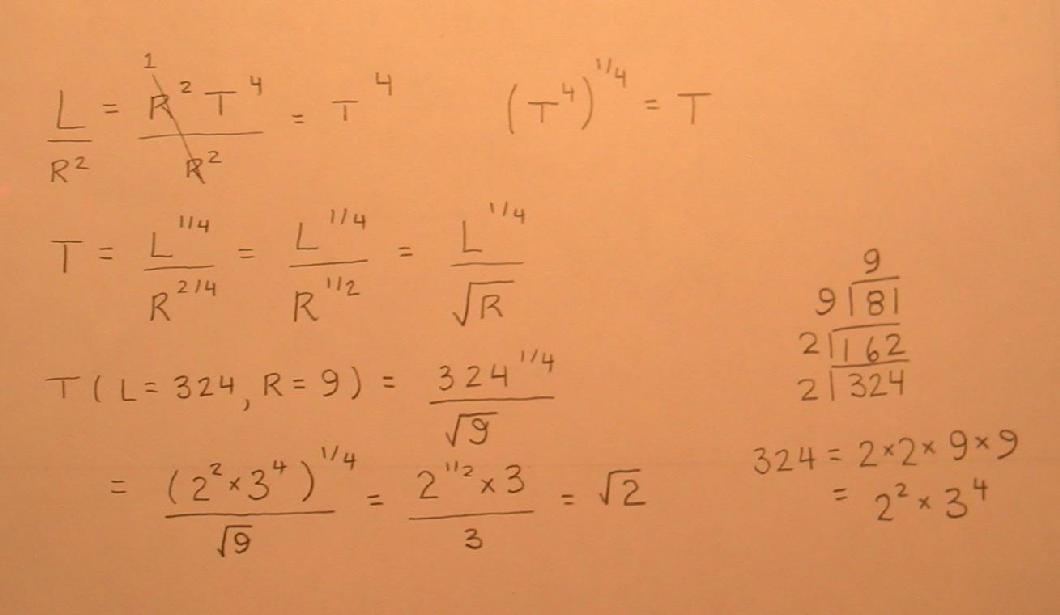 L/R² = R²T⁴/R² = T⁴ (T⁴)^1/4 = T
1
T = L^1/4 / R^2/4 = L^1/4 / R^1/2 = L^1/4 / √R
T(L=324, R=9) = 324^1/4 / √9
= (2²×3⁴)^1/4 / √9 = 2^1/2×3 / 3 = √2
9
9|81
2|162
2|324
324 = 2×2×9×9
= 2²×3⁴